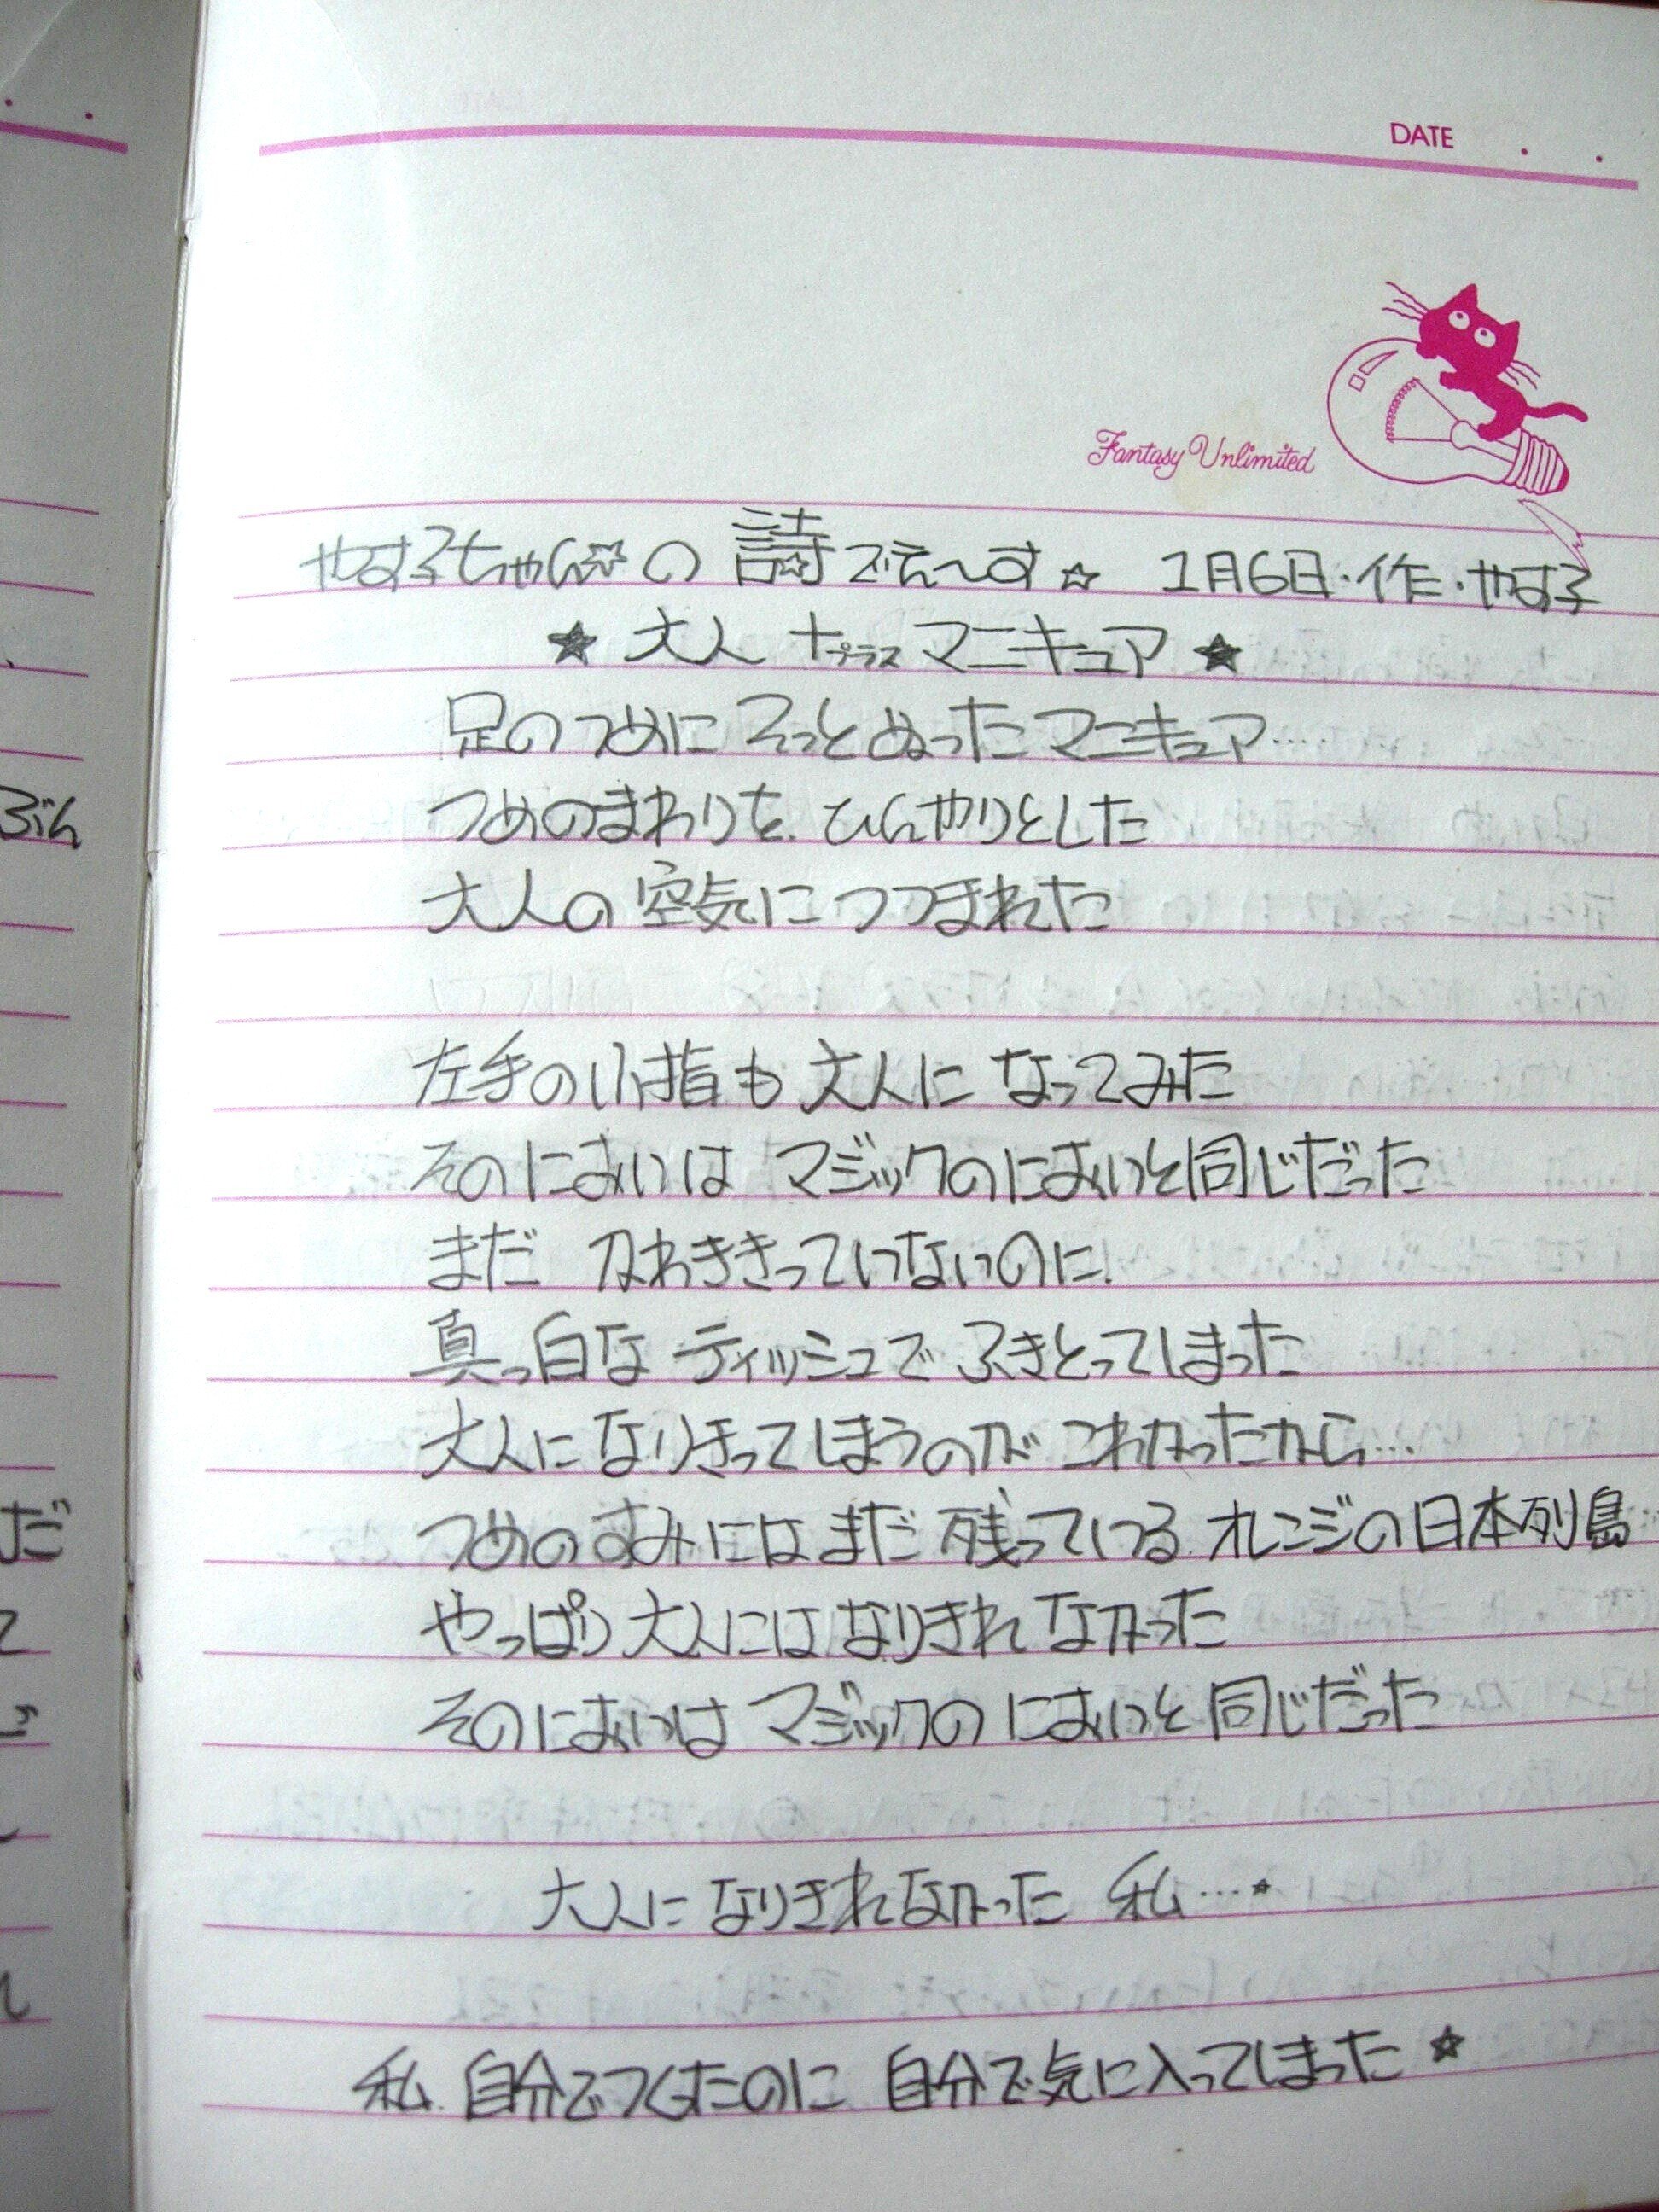 DATE . .
Fantasy Unlimited
やす子ちゃん☆の 詩でえ〜す☆ 1月6日・作・やす子
★ 大人 +プラス マニキュア ★
足のつめに そっとぬったマニキュア……
つめのまわりを ひんやりとした
大人の空気につつまれた
左手の小指も 大人に なってみた
そのにおいは マジックのにおいと同じだった
まだ かわききっていないのに
真っ白な ティッシュで ふきとってしまった
大人になりきってしまうのが こわかったから…
つめのすみにはまだ 残っている オレンジの日本列島
やっぱり 大人には なりきれ なかった
そのにおいは マジックの においと 同じだった
大人に なりきれなかった 私…★
私 自分でつくたのに 自分で気に入ってしまった ★
ぶん
だ
て